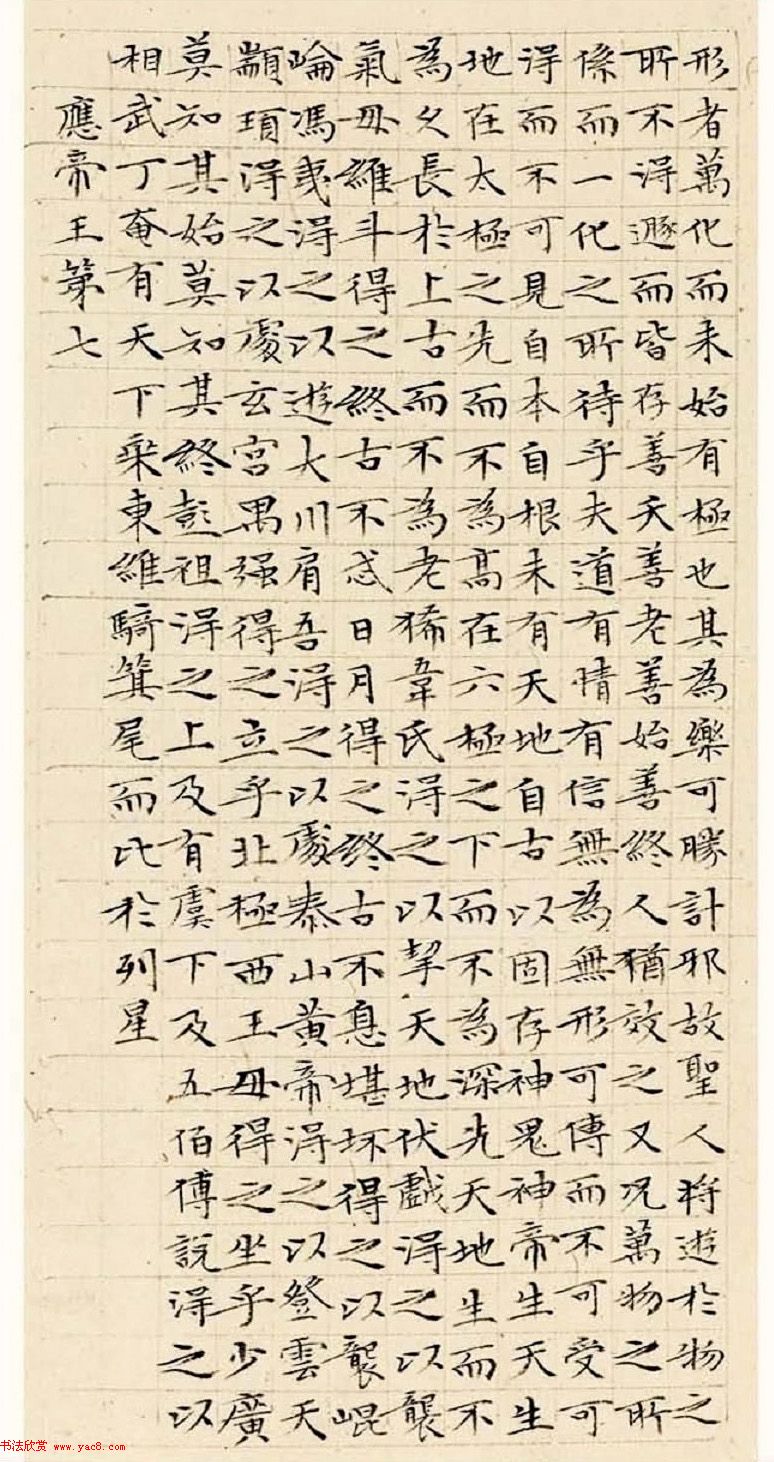 形者萬化而未始有極也其為樂可勝計邪故聖人將遊於物之
所不得遯而皆存善夭善老善始善終人猶效之又况萬物之所
係而一化之所待乎夫道有情有信無為無形可傳而不可受可
得而不可見自本自根未有天地自古以固存神鬼神帝生天生
地在太極之先而不為高在六極之下而不為深先天地生而不
為久長於上古而不為老狶韋氏得之以挈天地伏戲得之以襲
氣母維斗得之終古不忒日月得之終古不息堪坏得之以襲崐
崘馮夷得之以遊大川肩吾得之以處泰山黃帝得之以登雲天
顓頊得之以處玄宮禺强得之立乎北極西王母得之坐乎少廣
莫知其始莫知其終彭祖得之上及有虞下及五伯傅說得之以
相武丁奄有天下乘東維騎箕尾而比於列星
應帝王第七
书法欣赏 www.yac8.com